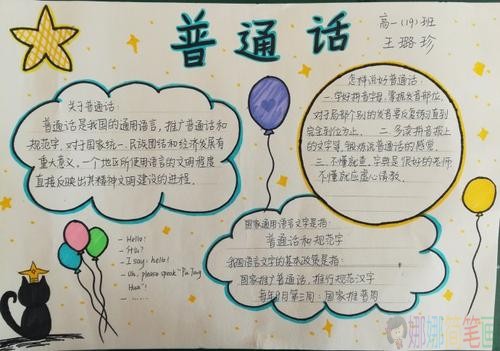 普通话
高一(19)班
王璐珍
关于普通话:
普通话是我国的通用语言,推广普通话和
规范字,对于国家统一、民族团结和经济发展有
重大意义。一个地区所使用语言的文明程度
直接反映出其精神文明建设的进程。
怎样说好普通话:
一.学好拼音字母,掌握发音部位,
对于局部个别的发音要反复练习直到
完全到位为止。二.多读拼音报上
的文字等,锻炼说普通话的感觉.
三.不懂就查,字典是很好的老师
不懂就应虚心请教。
- Hello!
- I say: hello!
- Uh, please speak "Pu Tong
Hua"!
- ......
国家通用语言文字是指:
普通话和规范字
我国语言文字的基本政策是指:
国家推广普通话,推行规范汉字
每年9月第三周:国家推普周
娜娜简笔画